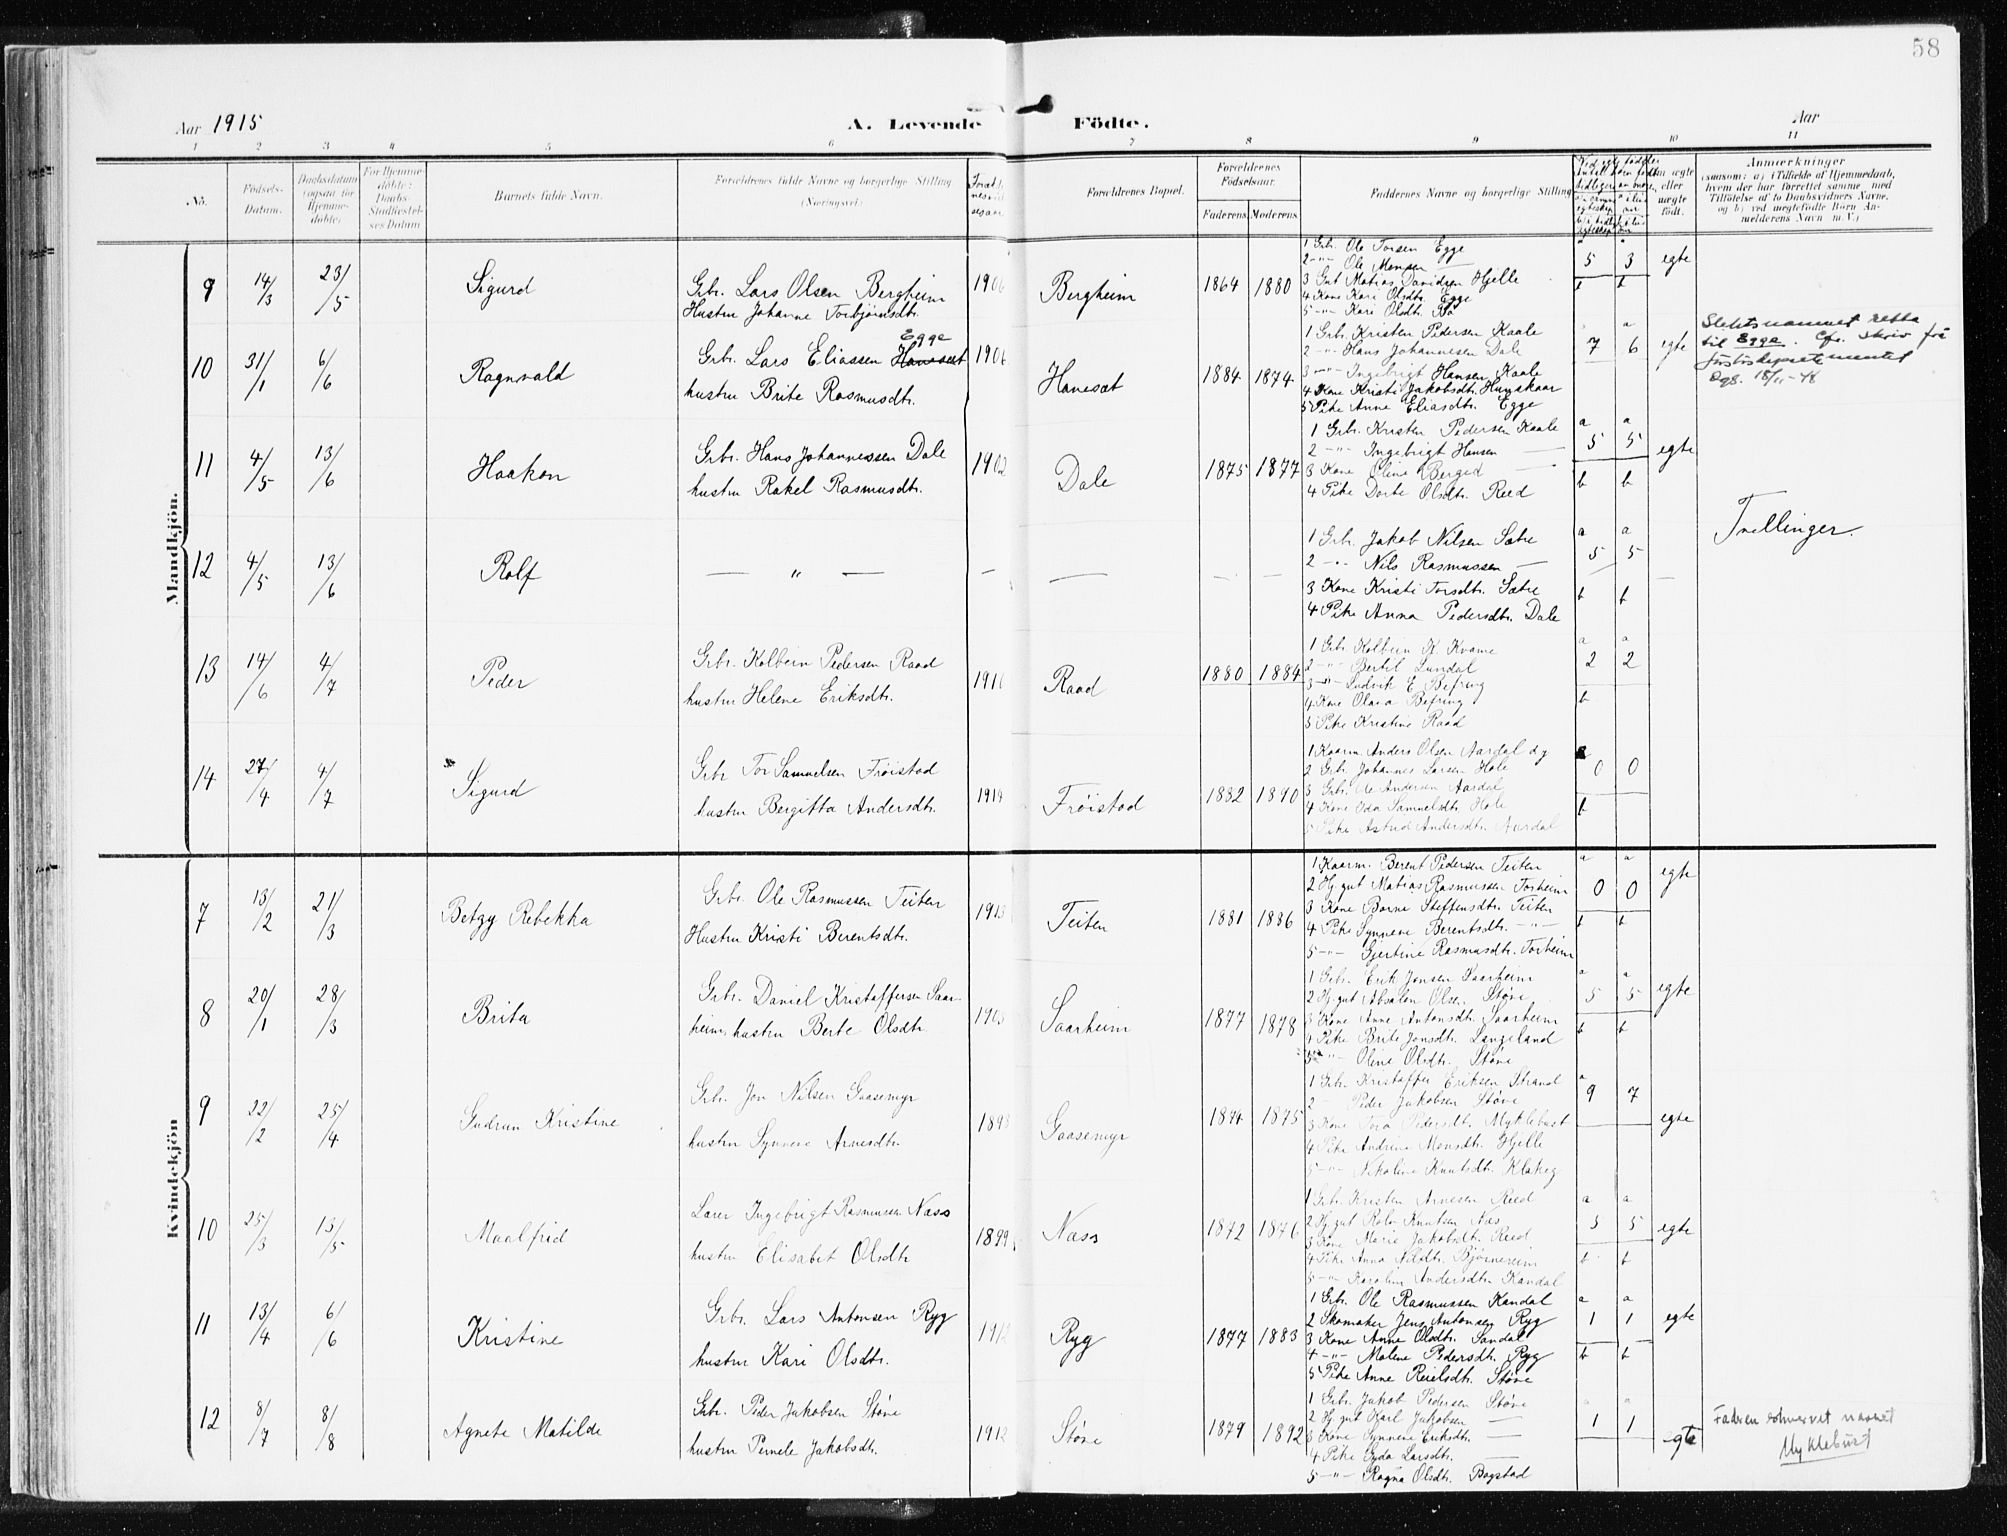 58
Aar 1915
A. Levende Födte.
Aar
1 2 3 4 5 6 7 8 9 10 11
No.
Födsels-Datum.
Daabsdatum (ogsaa for Hjemmedöbte)
For Hjemmedöbte: Daabs-Stadfæstelses Datum
Barnets fulde Navn.
Forældrenes fulde Navne og borgerlige Stilling (Næringsvei)
Forældrenes Bopæl.
Forældrenes Födselsaar.
Faderens. Moderens.
Faddernes Navne og borgerlige Stilling
Om ægte eller uægte födt.
Anmærkninger
(saasom: a) i Tilfælde af Hjemmedaab,
hvem der har forrettet samme med
Tilföielse af to Daabsvidners Navne,
og b) ved uægtefödte Börn Anmelderens Navn m. V.)
Mandkjön.
9 14/3 23/5 Sigurd
Grb. Lars Olsen Bergheim
Hustru Johanne Torbjørnsdtr.
1906 Bergheim 1864 1880
1 Grb. Ole Torsen Egge
2 -"- Ole Monsen —
3 Gut Matias Davidsen Hjelle
4 Kone Kari Olsdtr. Egge
5 -"- Kari Olsdtr. Bø
5 3 egte
10 31/1 6/6 Ragnvald
Egge
Grb. Lars Eliassen Hanesæt
hustru Brite Rasmusdtr.
1906 Hanesæt 1884 1874
1 Grb. Kristen Pedersen Kaale
2 -"- Hans Johannesen Dale
3 -"- Ingebrigt Hansen Kaale
4 Kone Kristi Jakobsdtr. Hunskaar
5 Pike Anne Eliasdtr. Egge
7 6 egte
Slektsnamnet retta
til Egge. Cfr. skriv frå
Justisdepartementet
Dgs. 18/11-48
11 4/5 13/6 Haakon
Grb. Hans Johannessen Dale
hustru Rakel Rasmusdtr.
1902 Dale 1875 1877
1 Grb. Kristen Pedersen Kaale
2 -"- Ingebrigt Hansen —
3 Kone Oline Berged —
4 Pike Dorte Olsdtr. Reed
a a
5 5 egte
b b
12 4/5 13/6 Rolf
— " —
1 Grb. Jakob Nilsen Sætre
2 -"- Nils Rasmussen —
3 Kone Kristi Torsdtr. Sætre
4 Pike Anna Pedersdtr. Dale
a a
5 5 —
b b
Tvillinger.
13 14/6 4/7 Peder
Grb. Kolbein Pedersen Raad
hustru Helene Eriksdtr.
1910 Raad 1880 1884
1 Grb. Kolbein K. Kvame
2 -"- Bertil Lundal
3 -"- Ludvik E. Befring
4 Kone Olava Befring
5 Pike Kristine Raad
a a
2 2
b
14 27/4 4/7 Sigurd
Grb. Tor Samuelsen Frøistad
hustru Bergitta Andersdtr.
1914 Frøistad 1882 1890
1 Kaarm. Anders Olsen Aardal d.y
2 Grb. Johannes Larsen Hole
3 Grb. Ole Andersen Aardal
4 Kone Ida Samuelsdtr. Hole
5 Pike Astrid Andersdtr. Aardal
0 0
b
Kvindekjön
7 13/2 21/3 Betzy Rebekka
Grb. Ole Rasmussen Teiten
Hustru Kristi Berentsdtr.
1913 Teiten 1881 1886
1 Kaarm. Berent Pedersen Teiten
2 Hj. gut Matias Rasmussen Torheim
3 Kone Borne Steffensdtr. Teiten
4 Pike Synneve Berentsdtr. -"-
5 -"- Gjertine Rasmusdtr. Torheim
a a
0 0 egte
b b
8 20/1 28/3 Brita
Grb. Daniel Kristoffersen Saar-
heim, hustru Berte Olsdtr.
1905 Saarheim 1877 1878
1 Grb. Erik Jonsen Saarheim
2 Hj. gut Absalon Olsen Støve
3 Kone Anne Antonsdtr. Saarheim
4 Pike Brite Jonsdtr. Langeland
5 -"- Oline Olsdtr. Støve
a a
5 5 egte
b b
9 22/2 25/4 Gudrun Kristine
Grb. Jon Nilsen Gaasemyr
hustru Synneve Arnesdtr.
1898 Gaasemyr 1874 1875
1 Grb. Kristoffer Eriksen Strand
2 - Peder Jakobsen Støve
3 Kone Tora Pedersdtr. Myklebust
4 Pike Andrine Monsdtr. Hjelle
5 -"- Nikoline Knutsdtr. Klakeg
a
9 7 egte
10 25/3 13/5 Maalfrid
Lærer Ingebrigt Rasmussen Næss
hustru Elisabet Olsdtr
1899 Næss 1872 1876
1 Grb. Kristen Arnesen Reed
2 Hj. gut Rolv Knutsen Næs
3 Kone Marie Jakobsdtr. Reed
4 Pike Anna Nilsdtr. Bjørnereim
5 -"- Karoline Andersdtr. Kandal
a a
5 5 egte
b b
11 13/4 6/6 Kristine
Grb. Lars Antonsen Ryg
hustru Kari Olsdtr.
1912 Ryg 1877 1883
1 Grb. Ole Rasmussen Kandal
2 Skomaker Jens Antonsen Ryg
3 Kone Anne Olsdtr. Sandal
4 -"- Malene Pedersdtr. Ryg
5 Pike Anne Reielsdtr. Støve
a a
1 1 egte
b b
12 8/7 8/8 Agnete Matilde
Grb. Peder Jakobsen Støve
hustru Pernele Jakobsdtr.
1912 Støve 1879 1892
1 Grb. Jakob Pedersen Støve
2 Hj. gut Karl Jakobsen —
3 Kone Synneve Eriksdtr. —
4 Pike Gyda Larsdtr. —
5 -"- Ragna Olsdtr. Bogstad
1 1 egte
Faderen ervervet navnet
Myklebust